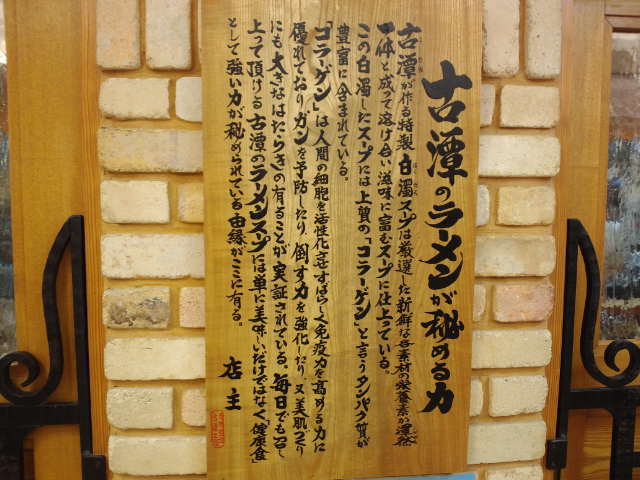 古潭のラーメンが秘める力
古潭が作る特製白濁スープは厳選した新鮮な各素材の栄養素が渾然
一体と成って溶け合い滋味に富むスープに仕上っている。
この白濁したスープには上質の「コラーゲン」と言うタンパク質が
豊富に含まれている。
「コラーゲン」は人間の細胞を活性化させすばらしく免疫力を高める力に
優れておりガンを予防したり、倒す力を強化したり、又美肌つくり
にも大きなはたらきの有ることが実証されている。毎日でも召し
上って頂ける古潭のラーメンスープには単に美味しいだけではなく「健康食」
として強い力が秘められている由縁がここに有る。
店主